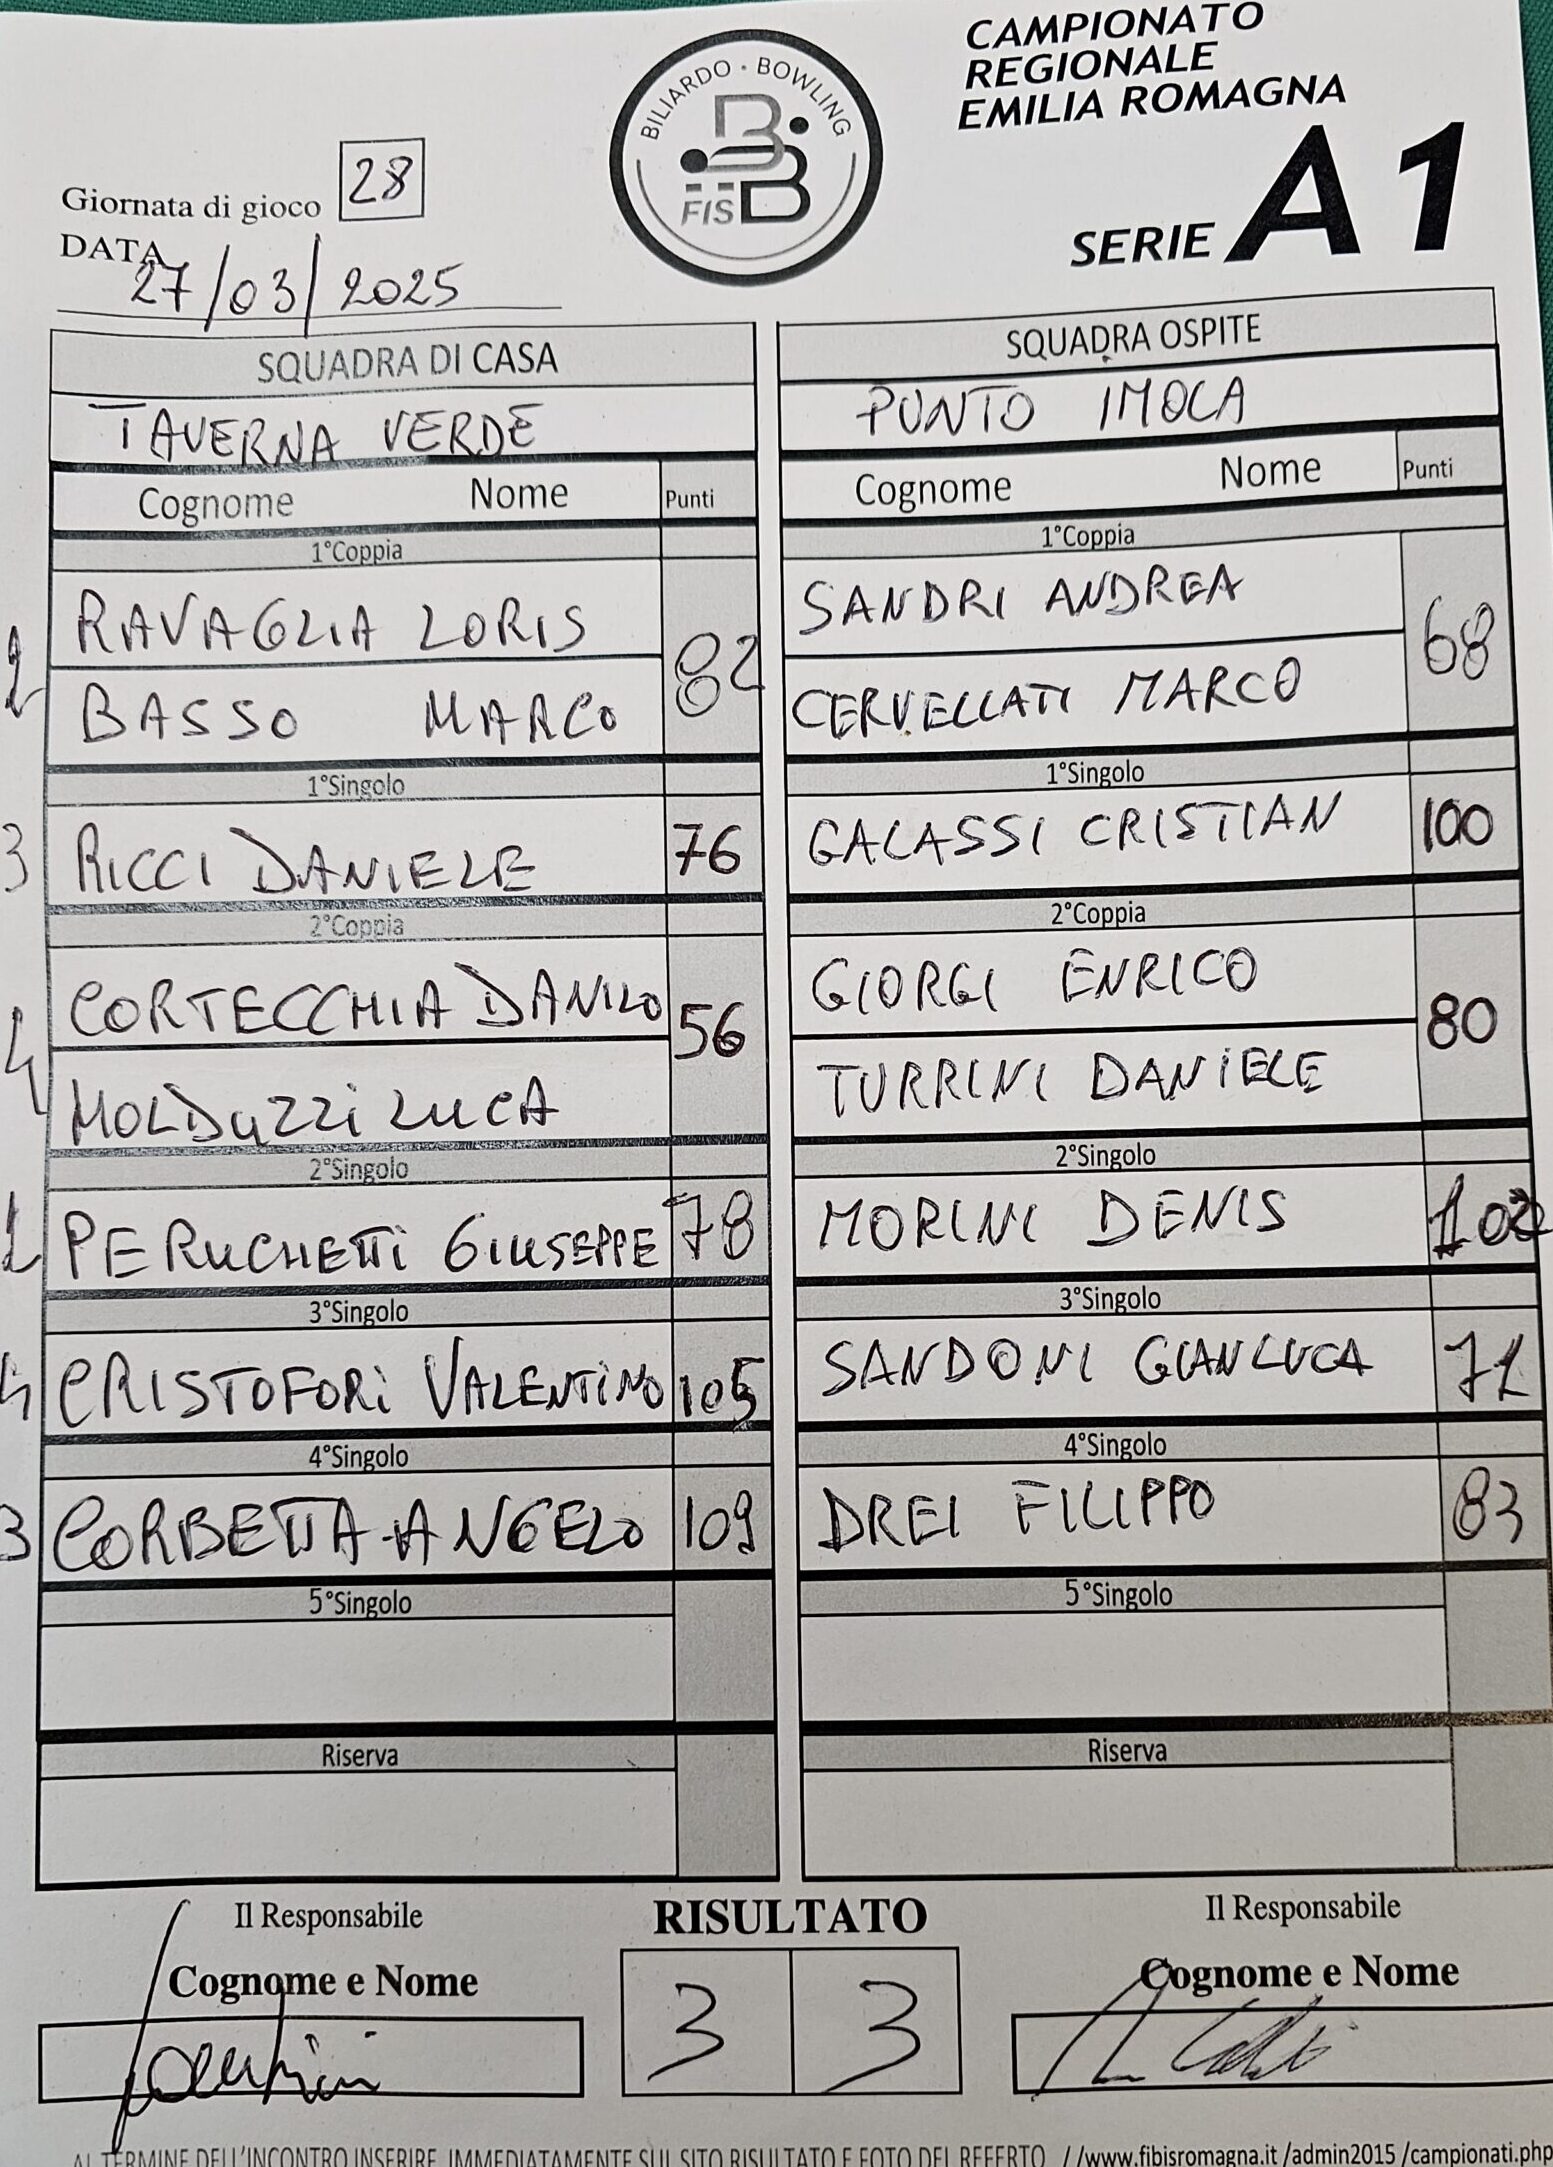 CAMPIONATO
REGIONALE
EMILIA ROMAGNA
SERIE A1
BILIARDO · BOWLING
FISBB
Giornata di gioco 28
DATA
27/03/2025
SQUADRA DI CASA SQUADRA OSPITE
TAVERNA VERDE PUNTO IMOLA
Cognome Nome Punti Cognome Nome Punti
1°Coppia 1°Coppia
RAVAGLIA LORIS SANDRI ANDREA
2 82 68
BASSO MARCO CERVELLATI MARCO
1°Singolo 1°Singolo
3 RICCI DANIELE 76 GALASSI CRISTIAN 100
2°Coppia 2°Coppia
CORTECCHIA DANILO GIORGI ENRICO
56 80
MOLDUZZI LUCA TURRINI DANIELE
2°Singolo 2°Singolo
PERUCHETTI GIUSEPPE 78 MORINI DENIS
3°Singolo 3°Singolo
CRISTOFORI VALENTINO 105 SANDONI GIANLUCA 71
4°Singolo 4°Singolo
3 CORBETTA ANGELO 109 DREI FILIPPO 83
5°Singolo 5°Singolo
Riserva Riserva
Il Responsabile RISULTATO Il Responsabile
Cognome e Nome 3 3 Cognome e Nome
AL TERMINE DELL'INCONTRO INSERIRE IMMEDIATAMENTE SUL SITO RISULTATO E FOTO DEL REFERTO //www.fibisromagna.it /admin2015 /campionati.php